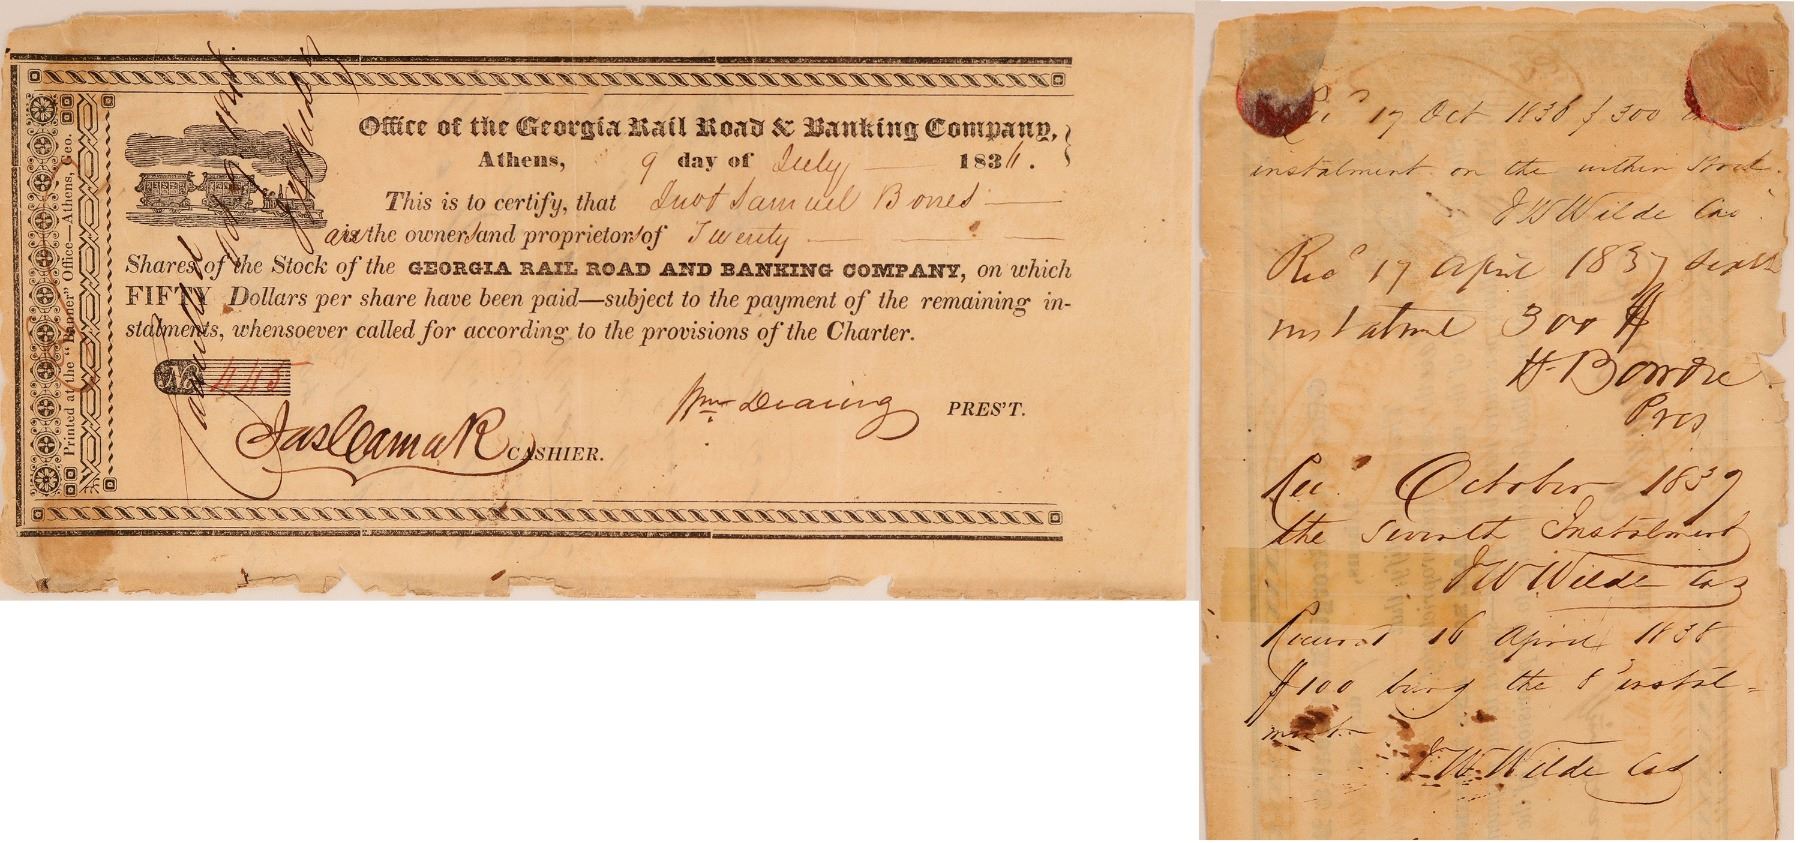 Office of the Georgia Rail Road & Banking Company,
Athens, 9 day of July 1836.
This is to certify, that Jno & Samuel Bones
are the owners and proprietors of Twenty
Shares of the Stock of the GEORGIA RAIL ROAD AND BANKING COMPANY, on which
FIFTY Dollars per share have been paid—subject to the payment of the remaining in-
stalments, whensoever called for according to the provisions of the Charter.
No 445
Wm Dearing PRES'T.
Jas Camak CASHIER.
Printed at the "Banner" Office—Athens, Geo.
17 Oct 1836 $300
instalment on the within Stock.
J W Wilde Cas
Recd 17 April 1837 sixth
instalme 300 $
H Bowdre
Pres
Rec October 1837
the seventh Instalment
J W Wilde Cas
Received 16 April 1838
$100 being the 8 instal=
ment.
J W Wilde Cas